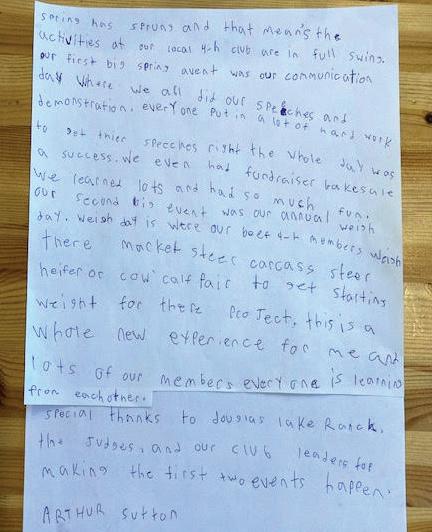 spring has sprung and that mean's the
activities at our local 4-h club are in full swing.
our first big spring avent was our communication
day where we all did our speeches and
demonstration. everyone put in a lot of hard work
to get thier speeches right the whole day was
a success. we even had fundraiser bakesale
we learned lots and had so much fun.
our second big event was our annual weigh
day. weigh day is were our beef 4-h members weigh
there macket steer carcass steer
heifer or cow calf fair to get starting
weight for there project, this is a
whole new experience for me and
lots of our members every one is learning
from eachother.
special thanks to douglas lake Ranch,
the Judges, and our club leaders for
making the first two events happen.
ARTHUR Sutton